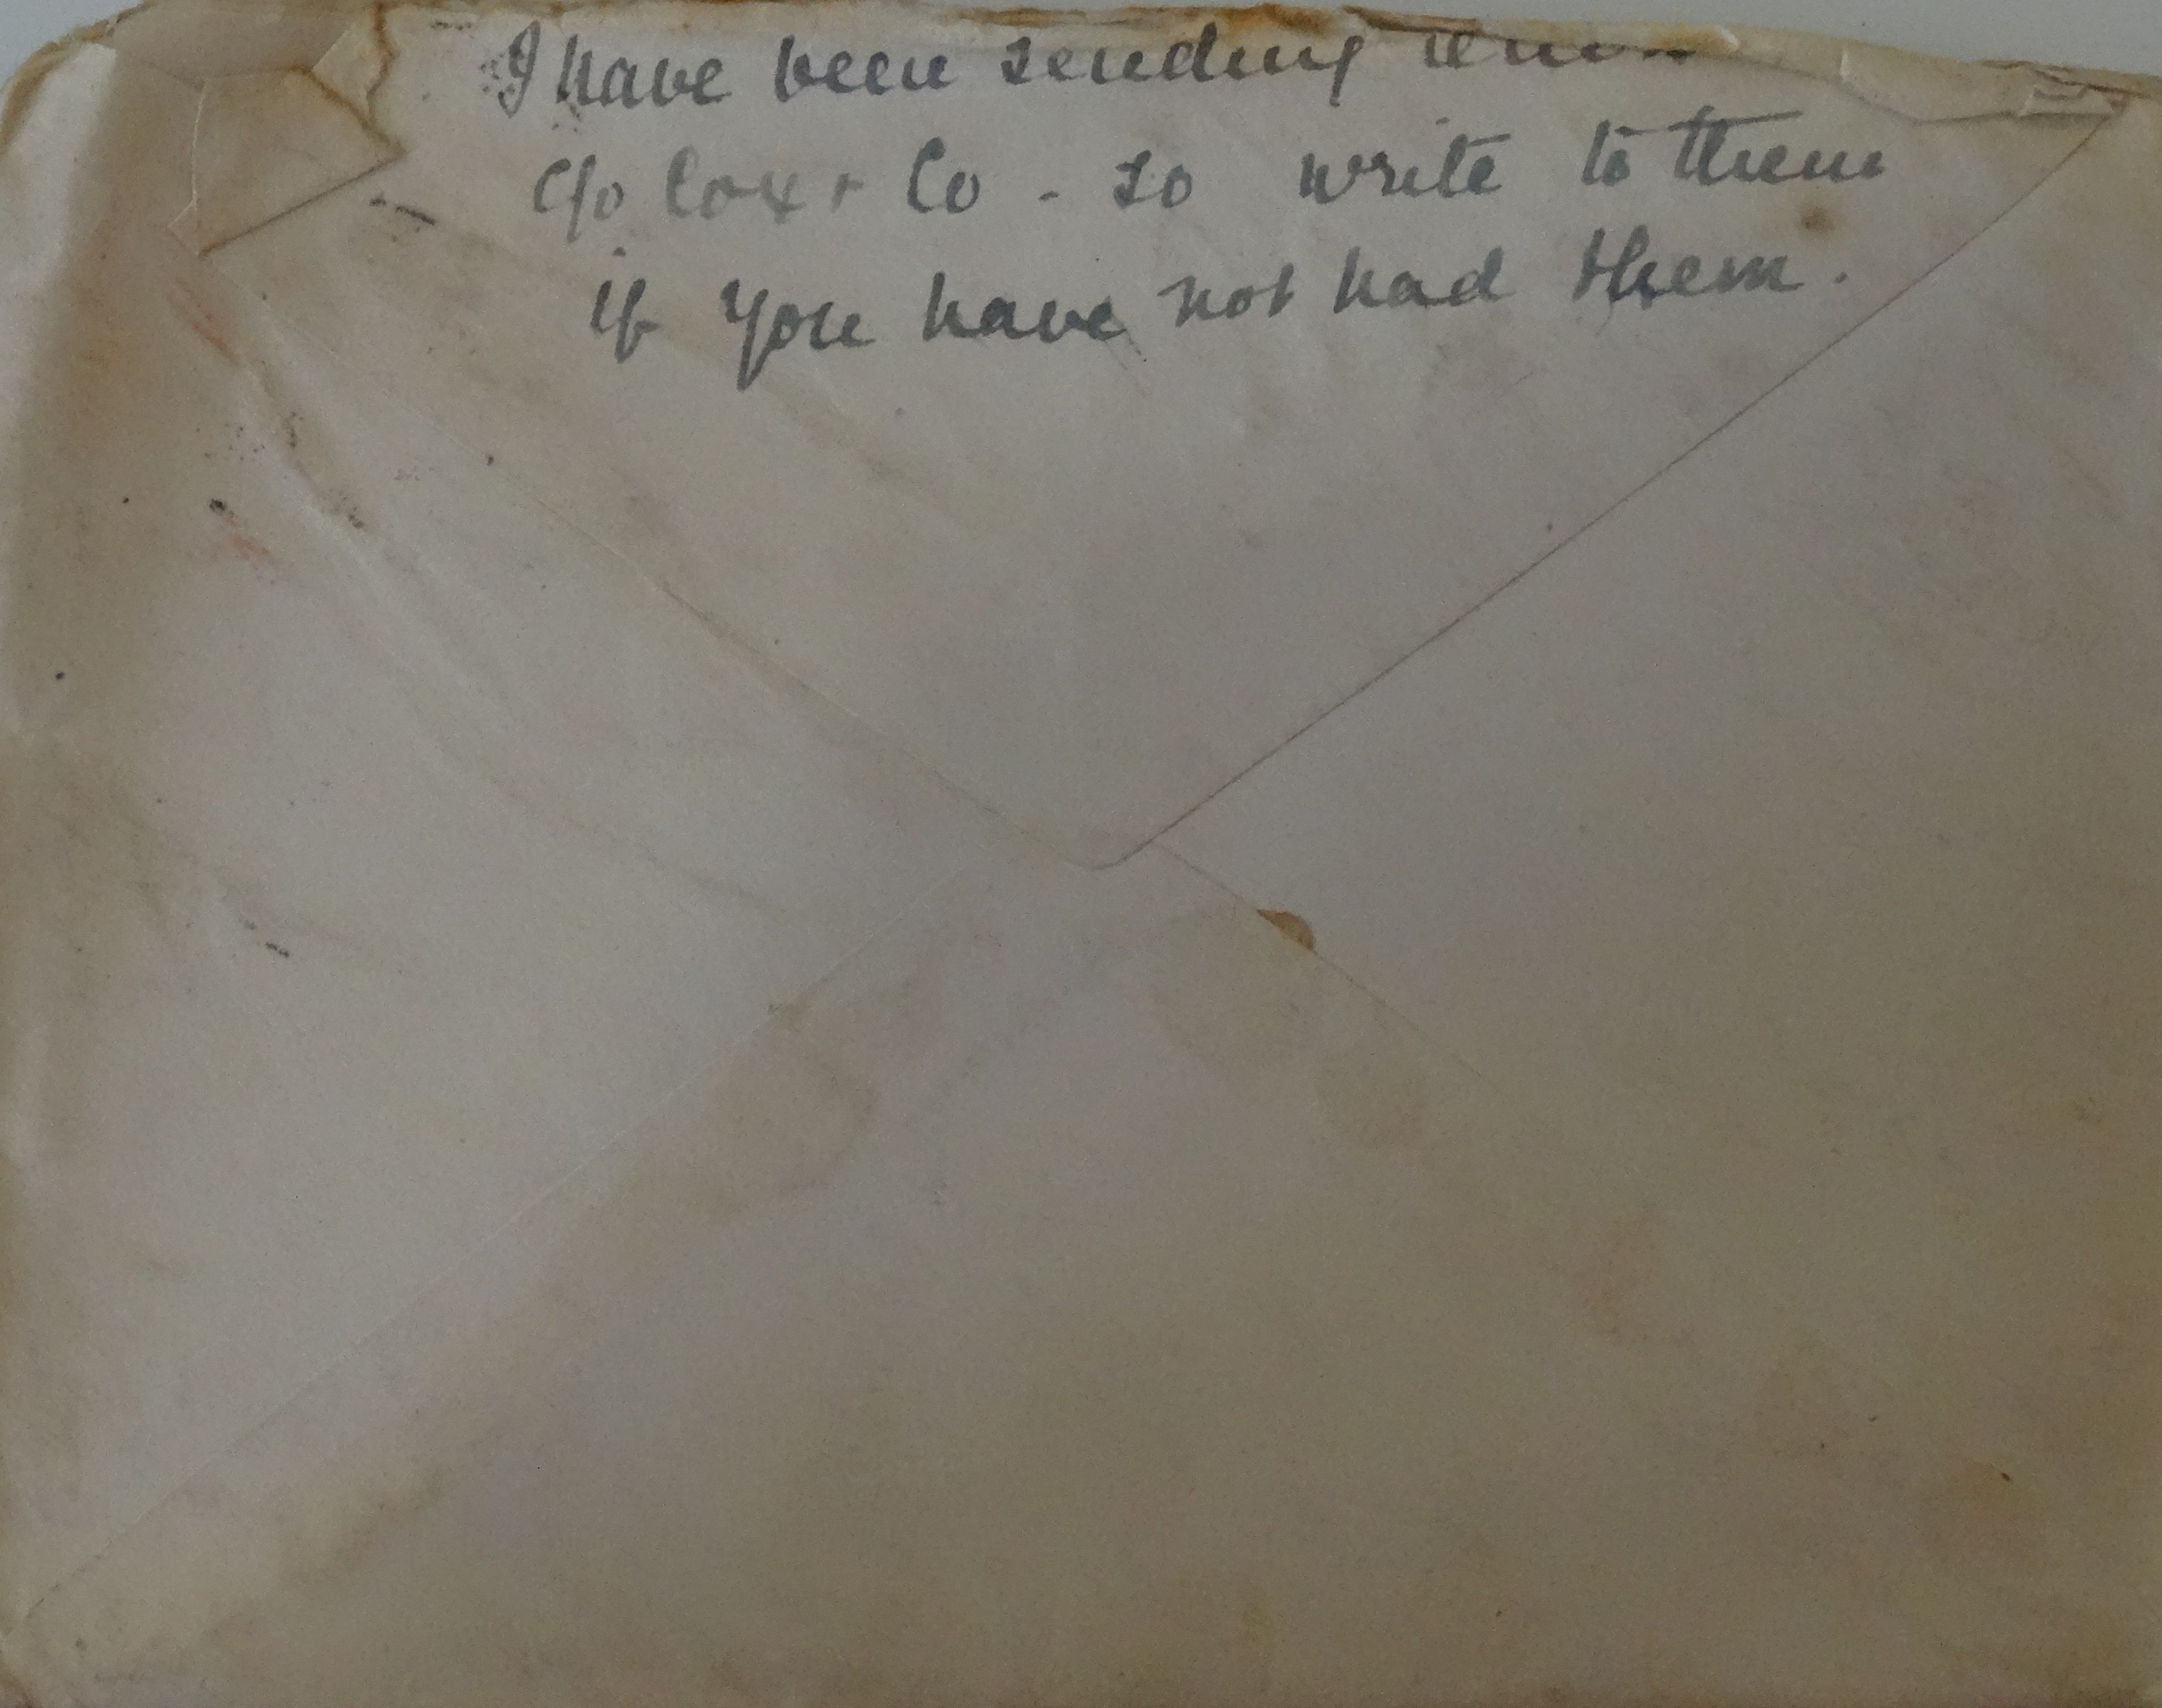 I have been sending
c/o Cox + Co - so write to them
if you have not had them.